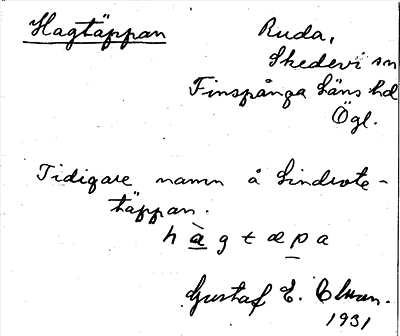 Hagtäppan
Ruda,
Skedevi sn
Finspånga Läns hd
Ögl.
Tidigare namn å Lindrote-
täppan.
h à g t æ p a
Gustaf E.
1931